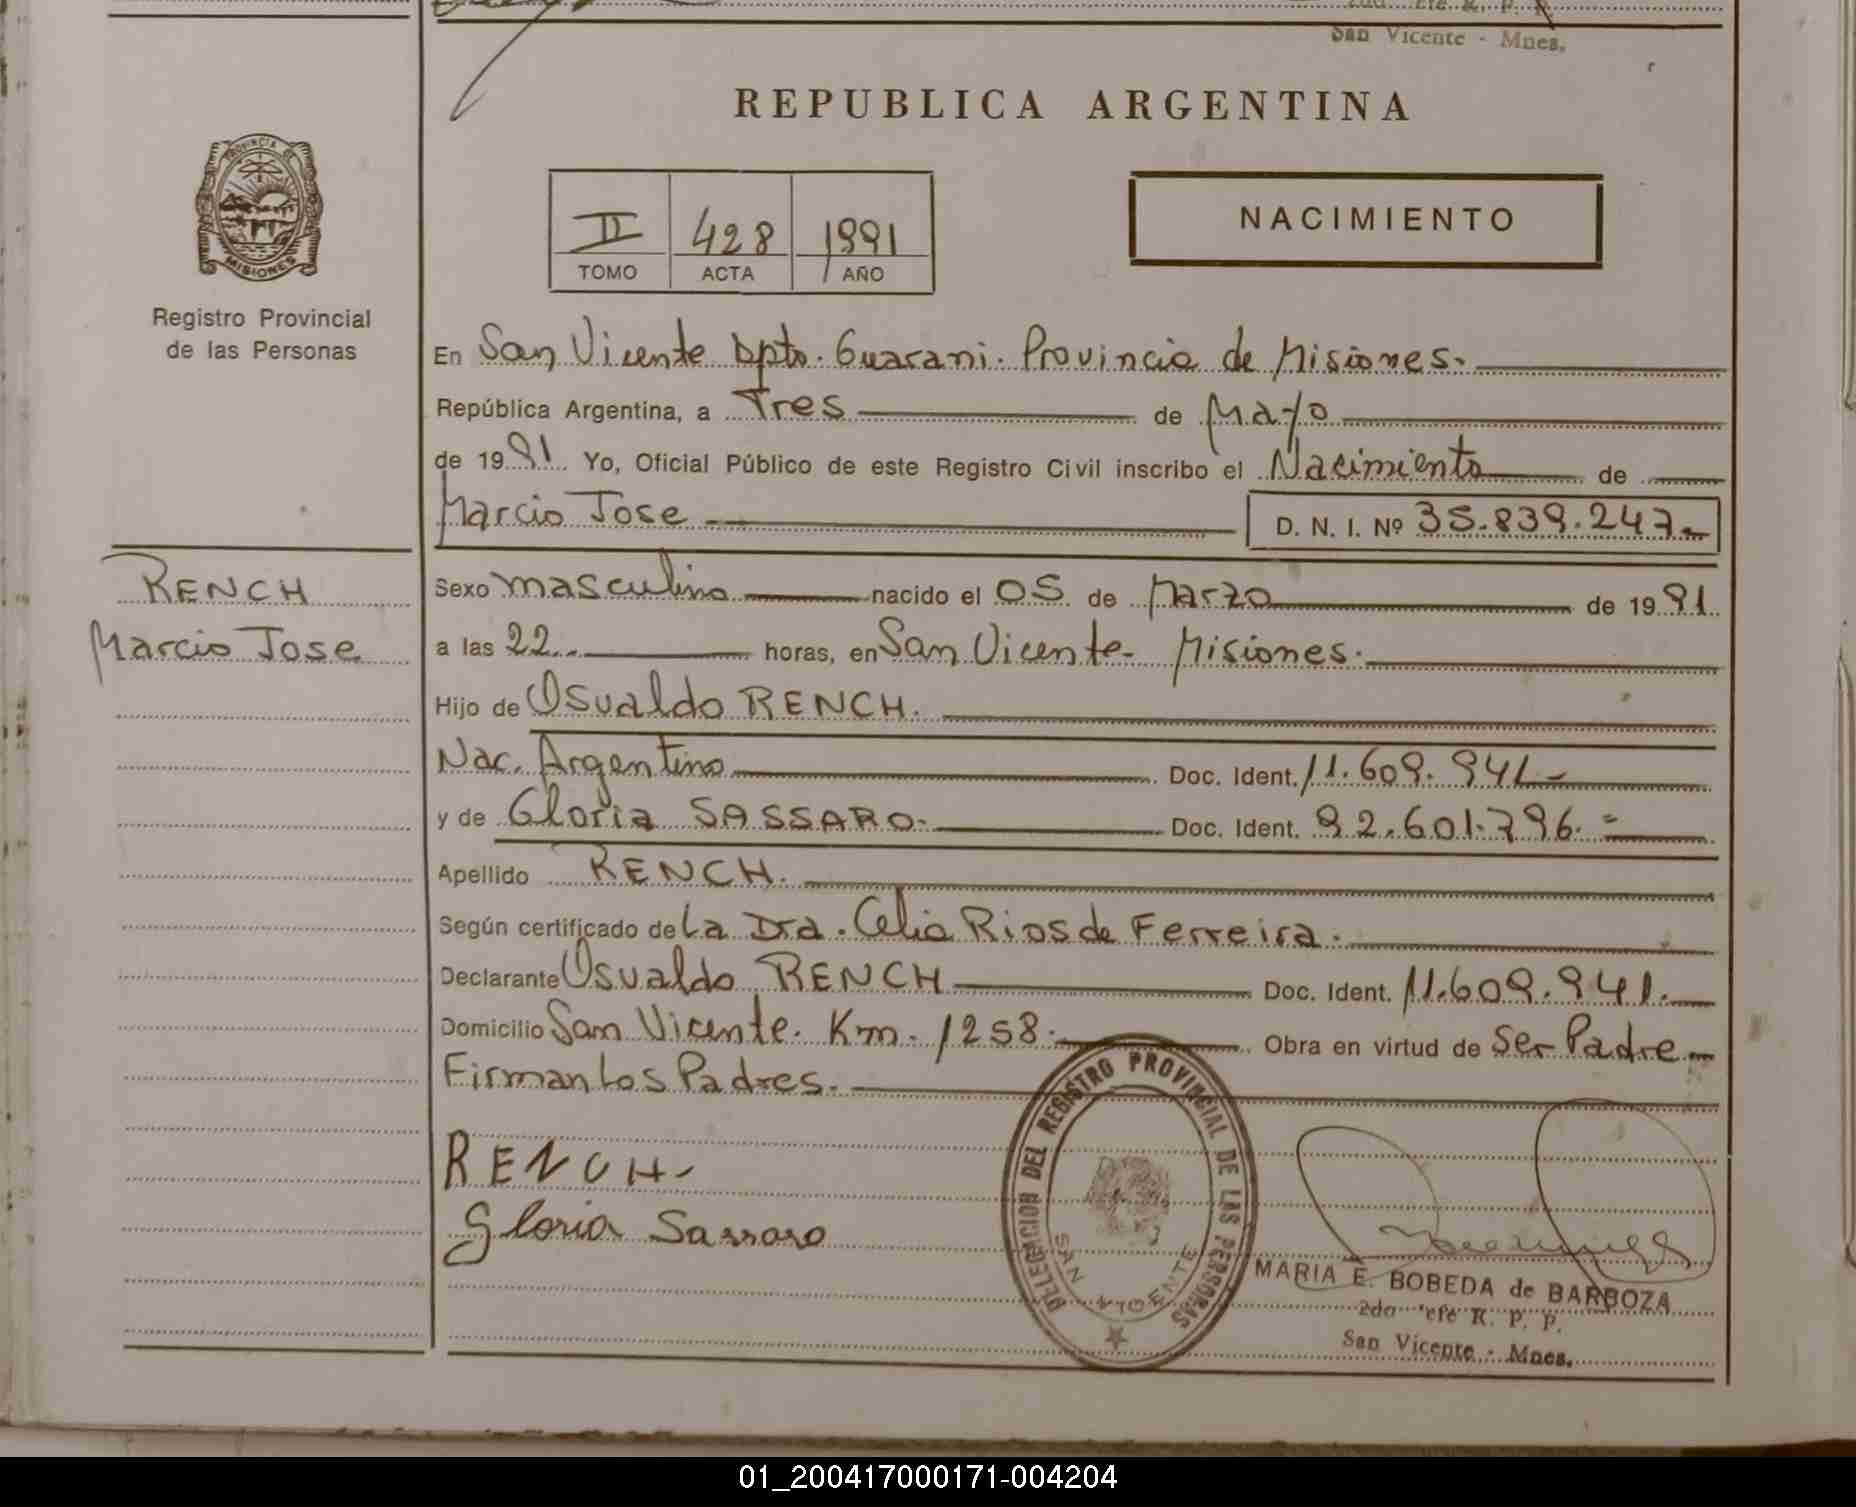 San Vicente - Mnes.
REPUBLICA ARGENTINA
PROVINCIA DE
MISIONES
Registro Provincial
de las Personas
II 428 1991
TOMO ACTA AÑO
NACIMIENTO
En San Vicente Dpto. Guarani. Provincia de Misiones.
República Argentina, a Tres de Mayo
de 1991 Yo, Oficial Público de este Registro Civil inscribo el Nacimiento de
Marcio Jose D. N. I. Nº 35.839.247.-
RENCH
Marcio Jose
Sexo masculino nacido el 05 de Marzo de 1991
a las 22.. horas, en San Vicente- Misiones.
Hijo de Osvaldo RENCH.
Nac. Argentino Doc. Ident. 11.609.941-
y de Gloria SASSARO. Doc. Ident. 92.601.796.=
Apellido RENCH.
Según certificado de La Dra. Celia Rios de Ferreira.
Declarante Osvaldo RENCH Doc. Ident. 11.609.941.
Domicilio San Vicente. Km. 1258. Obra en virtud de Ser Padre
Firman Los Padres.
RENCH-
Gloria Sassaro
DELEGACION DEL REGISTRO PROVINCIAL DE LAS PERSONAS
SAN VICENTE
MARIA E. BOBEDA de BARBOZA
2da Jefe R. P. P.
San Vicente - Mnes.
01_200417000171-004204